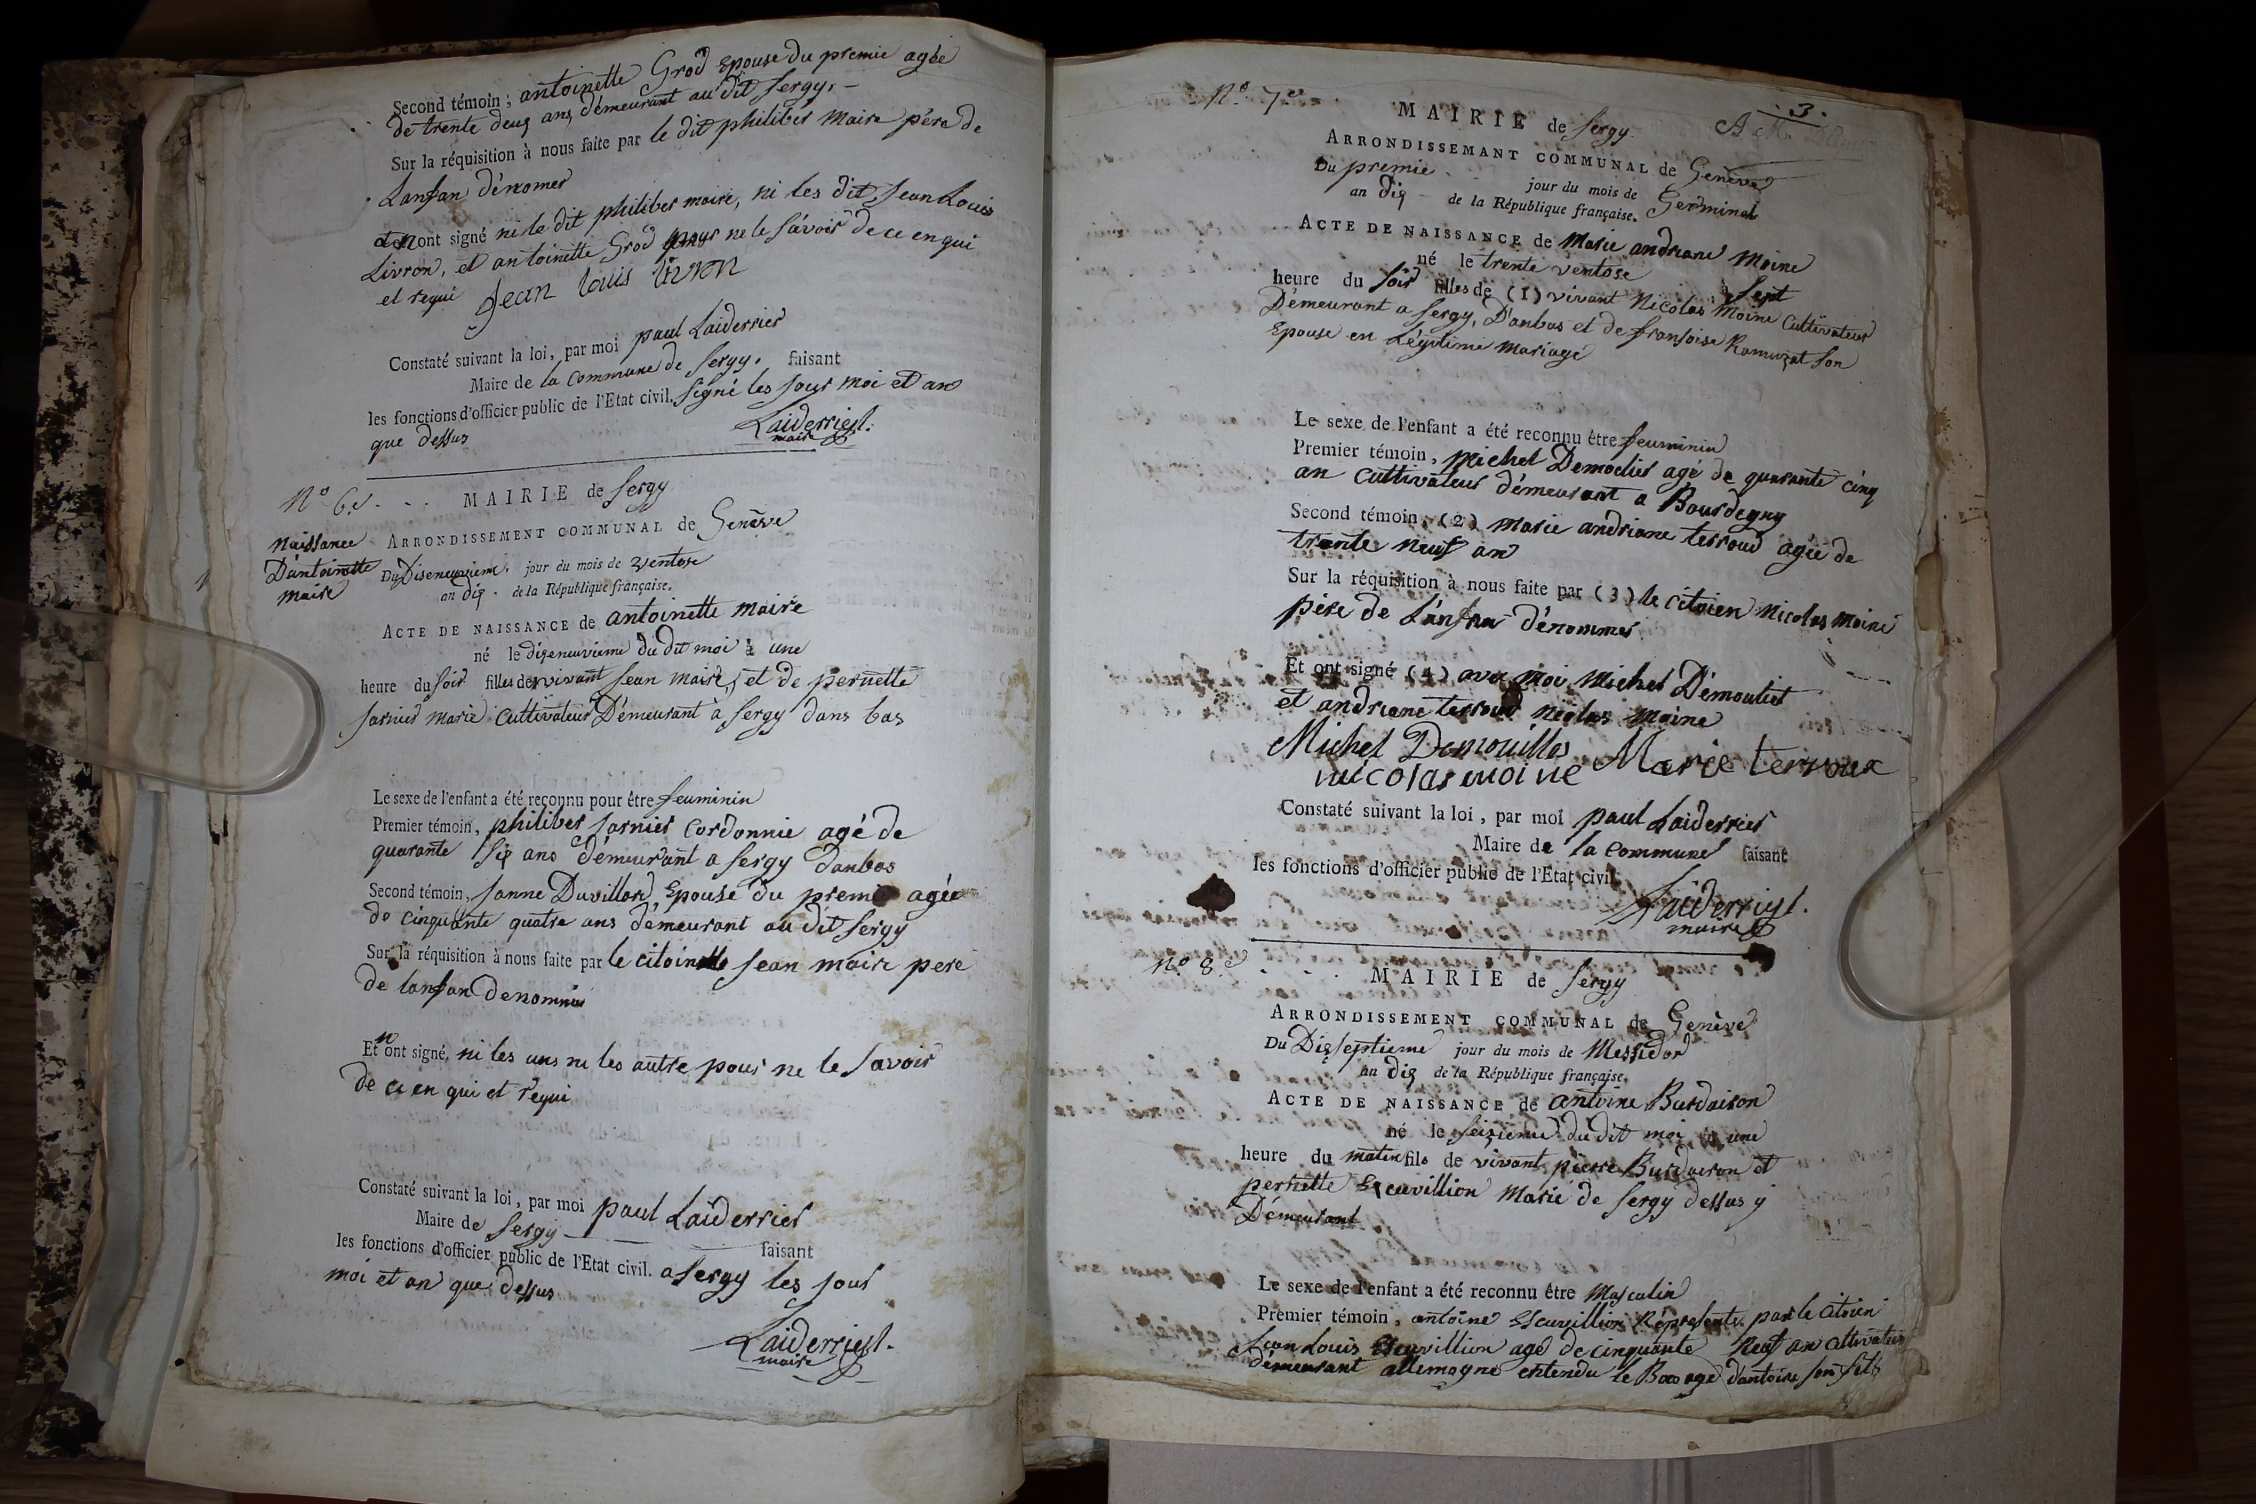 Second témoin, antoinette Grod Epouse du premie agée
de trente deux ans démeurant au dit Sergy. —
Sur la réquisition à nous faite par le dit philiber Maire père de
Lanfan dénomer
Et n'ont signé ni le dit philiber maire, ni les dit Jean Louis
Livron, et antoinette Grod pour ne le sávoir de ce enqui
et requi Jean louis livron
Constaté suivant la loi, par moi paul Laiderrier
Maire de la Commune de Sergy. faisant
les fonctions d'officier public de l'Etat civil. Signé les jour moi et an
que dessus
Laiderrier.
maire
N.º 6.e MAIRIE de Sergy
Naissance
D'antoinette
Maire
ARRONDISSEMENT COMMUNAL de Genève
Du Diseneuvieme. jour du mois de Ventose
an dix. de la République française.
ACTE DE NAISSANCE de antoinette Maire
né le dizeneuvieme du dit moi à une
heure du soir filles de vivant Jean Maire, et de pernette
Jarnier Marié Cultivateur Démeurant à Sergy dans bas
Le sexe de l'enfant a été reconnu pour être feuminin
Premier témoin, philiber Jarnier Cordonnie agé de
quarante Six ans démeurant a Sergy Danbas
Second témoin, Janne Duvillard, Epouse du premie agée
de cinquante quatre ans démeurant au dit Sergy
Sur la réquisition à nous faite par le citoin Jean Maire pere
de lanfan denommé
Et n'ont signé, ni les uns ni les autre pour ne le Savoir
de ce en qui et requi
Constaté suivant la loi, par moi paul Laiderrier
Maire de Sergy faisant
les fonctions d'officier public de l'Etat civil. a Sergy les jour
moi et an que dessus
Laiderrier.
maire
N.º 7.e
3.
MAIRIE de Sergy
ARRONDISSEMANT COMMUNAL de Genève
Du premie jour du mois de Germinal
an dix de la République française.
ACTE DE NAISSANCE de Marie andriane Moine
né le trente ventose à Sept
heure du soir filles de (1) vivant Nicolas Moine Cultivateur
Démeurant a Sergy, Danbas et de fransoise Ramuzat son
Epouse en Légitime Mariage
Le sexe de l'enfant a été reconnu être feuminin
Premier témoin, Michel Demoulier agé de quarante cinq
an Cultivateur démeurant a Bourdegny
Second témoin, (2) Marie andriane terroud agée de
trente neuf an
Sur la réquisition à nous faite par (3) le citoien Nicolas Moine
père de L'anfan dénommer
Et ont signé (4) avec Moi Michel Démoulier
et andriane terroud Nicolas Moine
Michel Demouilles Marie terroux
nicolas moine
Constaté suivant la loi, par moi paul Laiderrier
Maire de la Commune faisant
les fonctions d'officier public de l'Etat civil.
Laiderrier.
maire
N.º 8.e
MAIRIE de Sergy
ARRONDISSEMENT COMMUNAL de Genève
Du Dixseptieme jour du mois de Messidor
an dix de la République française.
ACTE DE NAISSANCE de antoine Burdairon
né le seizieme du dit moi à une
heure du matin fils de vivant pierre Burdairon et
pernette Escuvillion Marié de Sergy dessus y
Démeurant
Le sexe de l'enfant a été reconnu être Masculin
Premier témoin, antoine Escuvillion Réprésenté par le Citoien
Jean Louis Escuvillion agé de cinquante Neuf an Cultivateur
démeurant allemogne entendu le Bas age d'antoine son fils